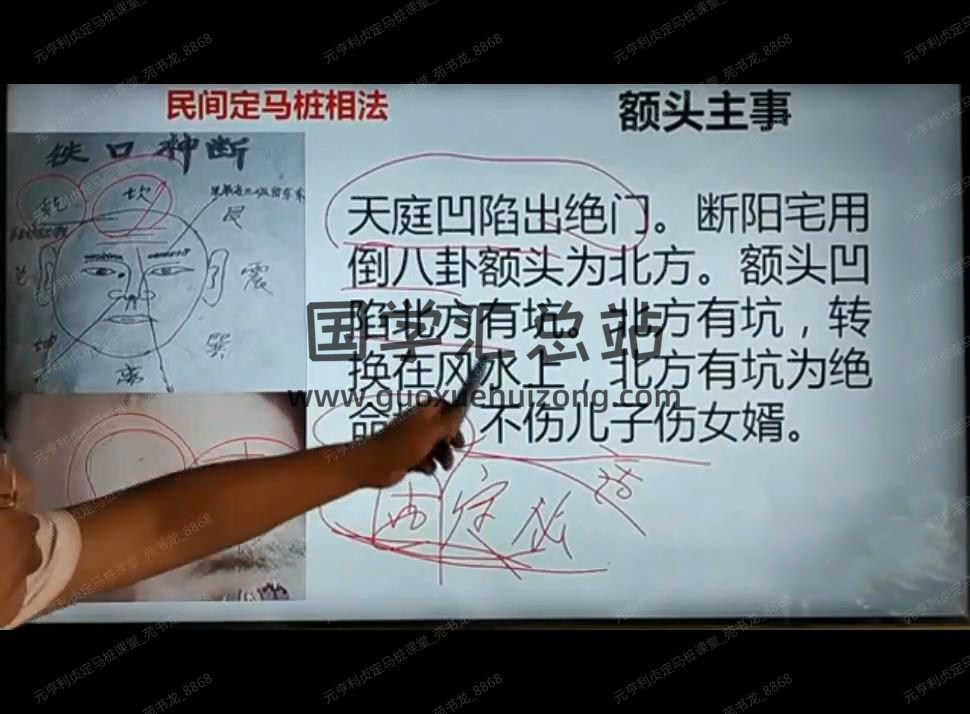 元亨利贞定马桩课堂_苑书龙_8868
民间定马桩相法
额头主事
铁口神断
乾
坎
艮
震
兑
坤
巽
离
天庭凹陷出绝门。断阳宅用
倒八卦额头为北方。额头凹
陷北方有坑。北方有坑，转
换在风水上，北方有坑为绝
命 不伤儿子伤女婿。
国学汇总站
www.guoxuehuizong.com